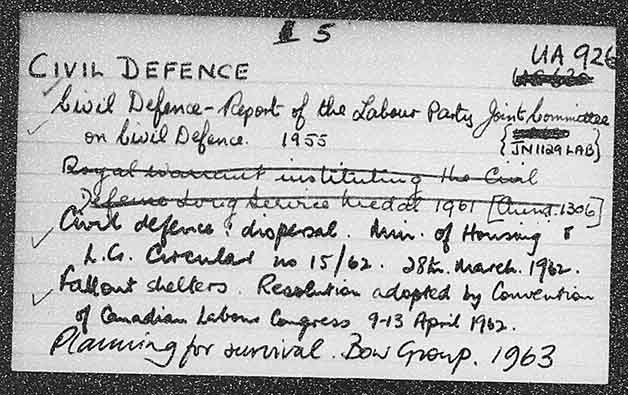 5
UA 926
CIVIL DEFENCE
Civil Defence - Report of the Labour Party Joint Committee
on Civil Defence. 1955
{JN1129 LAB}
Royal Warrant instituting the Civil
Defence Long Service Medal 1961 [Cmnd. 1306]
Civil defence: dispersal. Min. of Housing &
L.G. Circular no 15/62. 28th. March. 1962.
Fallout shelters. Resolution adopted by Convention
of Canadian Labour Congress 9-13 April 1962.
Planning for survival. Bow Group. 1963